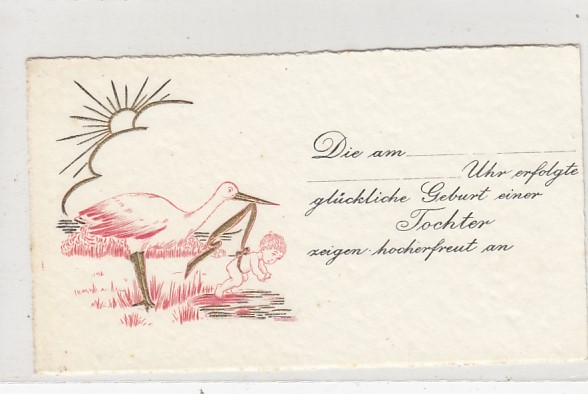 Die am
Uhr erfolgte
glückliche Geburt einer
Tochter
zeigen hocherfreut an